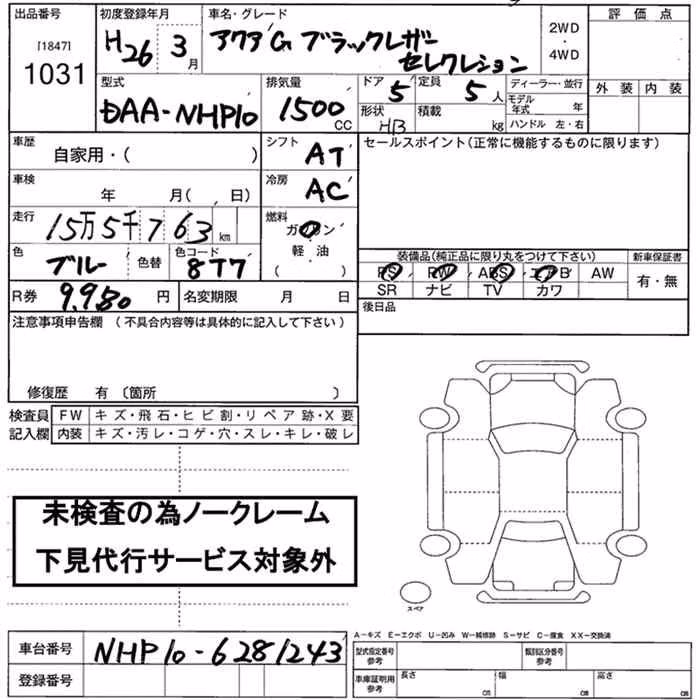 出品番号 初度登録年月 車名・グレード 評価点
[1847]
1031
H26 3月
アクア G ブラックレザー
セレクション
2WD
・
4WD
外装 内装
型式 排気量 ドア 定員 ディーラー・並行
DAA-NHP10 1500CC 5 5人
モデル年式 年
形状 HB 積載 kg ハンドル 左・右
車歴 自家用・( ) シフト AT セールスポイント(正常に機能するものに限ります)
車検 年 月( 、日) 冷房 AC
走行 15万5千763km 燃料 ガソリン
軽油
( )
色 ブルー 色替 色コード 8T7
装備品(純正品に限り丸をつけて下さい) 新車保証書
PS PW ABS エアB AW 有・無
SR ナビ TV カワ
R券 9,980円 名変期限 月 日
後日品
注意事項申告欄 (不具合内容等は具体的に記入して下さい)
修復歴 有 〔箇所 〕
検査員 FW キズ・飛石・ヒビ割・リペア跡・X要
記入欄 内装 キズ・汚レ・コゲ・穴・スレ・キレ・破レ
未検査の為ノークレーム
下見代行サービス対象外
スペア
A-キズ E-エクボ U-凹み W-補修跡 S-サビ C-腐食 XX-交換済
車台番号 NHP10-6281243
型式指定番号 参考 類別区分番号 参考
登録番号
車庫証明用 参考 長さ cm 幅 cm 高さ cm